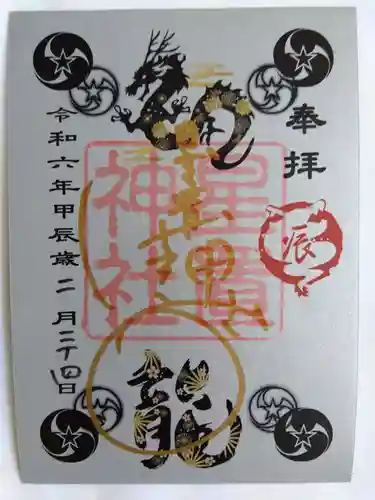 奉拝
辰
星置神社
龍
令和六年甲辰歳二月二十四日